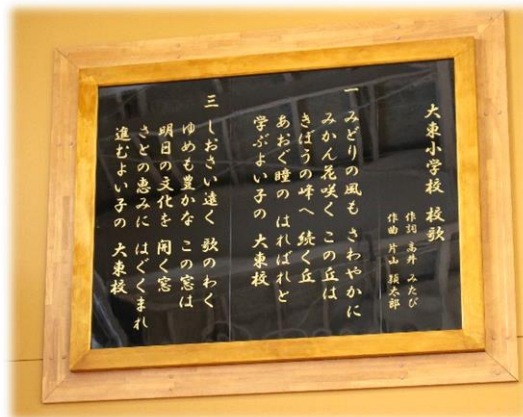 大東小学校 校歌
作詞 高井 みたび
作曲 片山 頴太郎
一 みどりの風も さわやかに
みかん花咲く この丘は
きぼうの峰へ 続く丘
あおぐ瞳の はればれと
学ぶよい子の 大東校
三 しおさい遠く 歌のわく
ゆめも豊かな この窓は
明日の文化を 開く窓
さとの恵みに はぐくまれ
進むよい子の 大東校